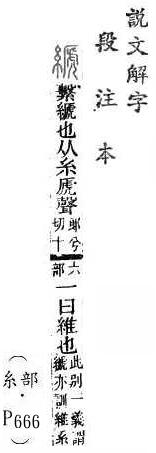 說文解字
段注本
𦃇 繫𦃇也从糸虒聲郎兮切十六部一曰維也此別一義謂𦃇亦訓維系
（糸部．P666）